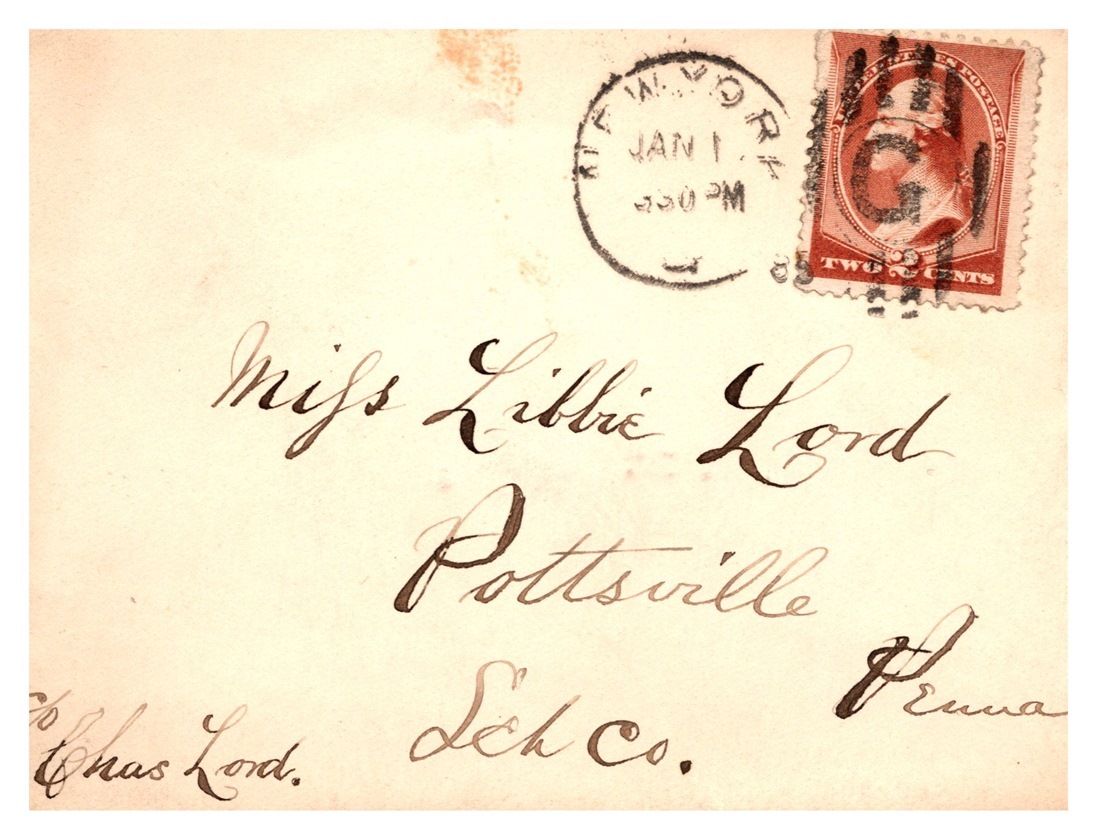 NEW YORK
JAN 1
330 PM
D
85
UNITED STATES POSTAGE
G
TWO 2 CENTS
Miss Libbie Lord
Pottsville
Penna
Sch Co.
c/o
Chas Lord.